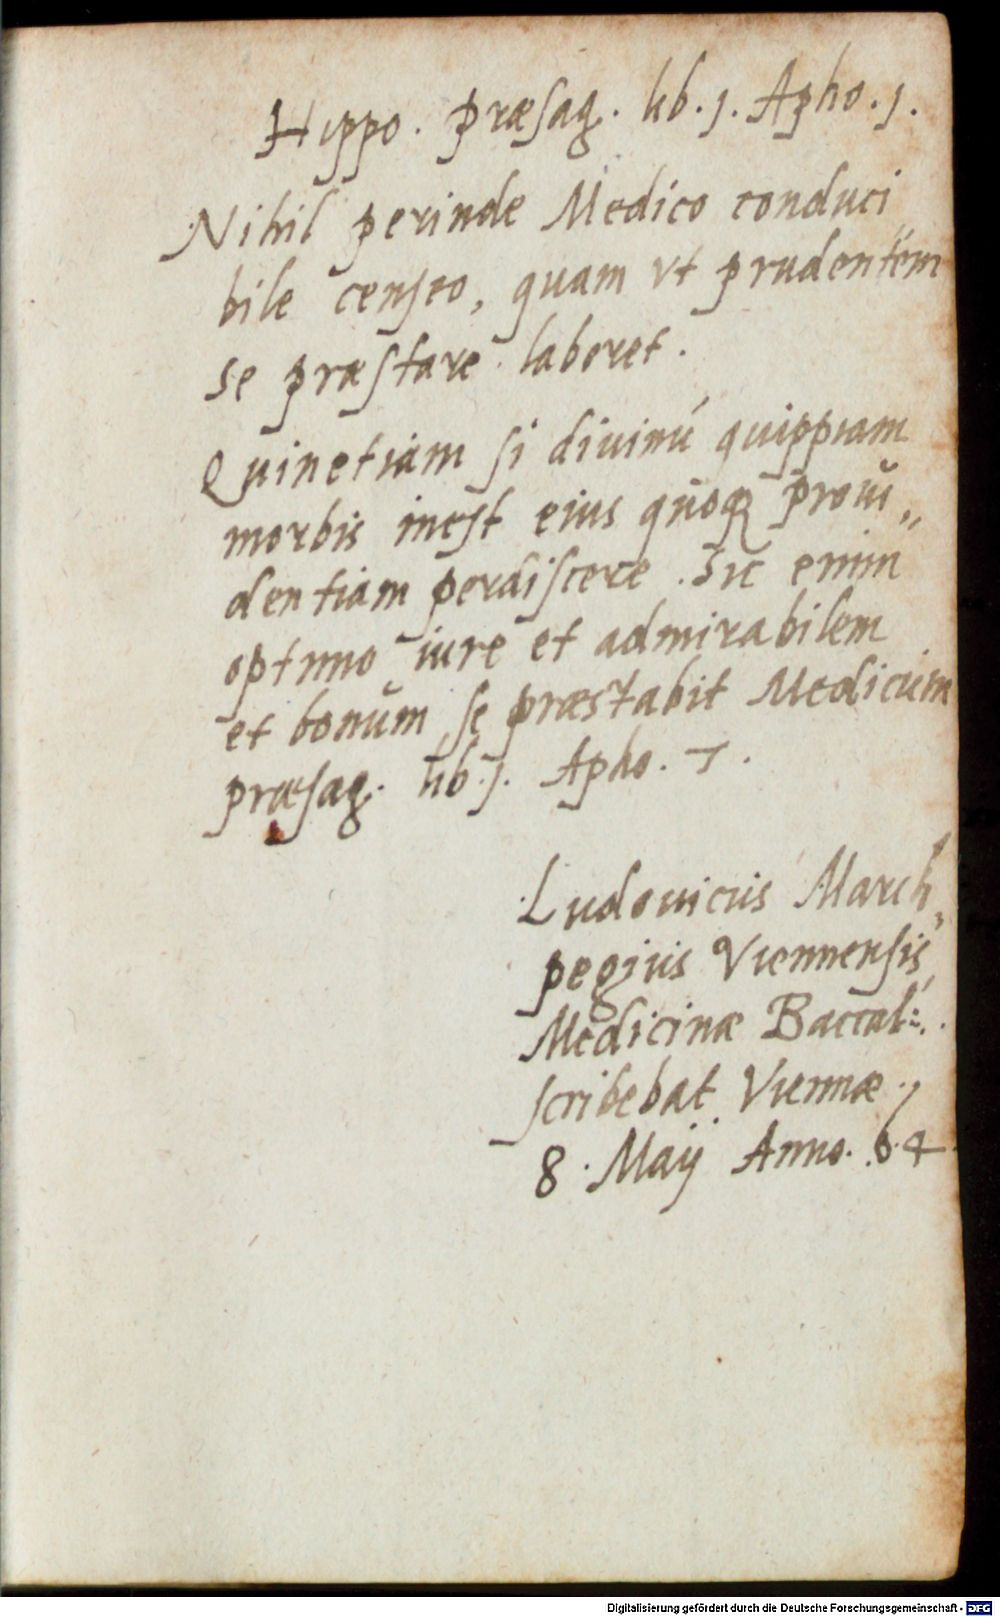 Hippo. præsag. lib. j. Apho. j.
Nihil perinde Medico conduci
bile censeo, quam vt prudentem
se præstare laboret.
Quinetiam si diuinú quippiam
morbis inest eius quoq prouĭ„
dentiam perdiscere. Sic enim
optimo iure et admirabilem
et bonŭm se præstabit Medicŭm
præsag. lib. j. Apho. 7.
Ludouicus March„
pegius Viennensis
Medicinæ Baccal:
scribebat Viennæ.
8. Maij Anno. 64
Digitalisierung gefördert durch die Deutsche Forschungsgemeinschaft - DFG